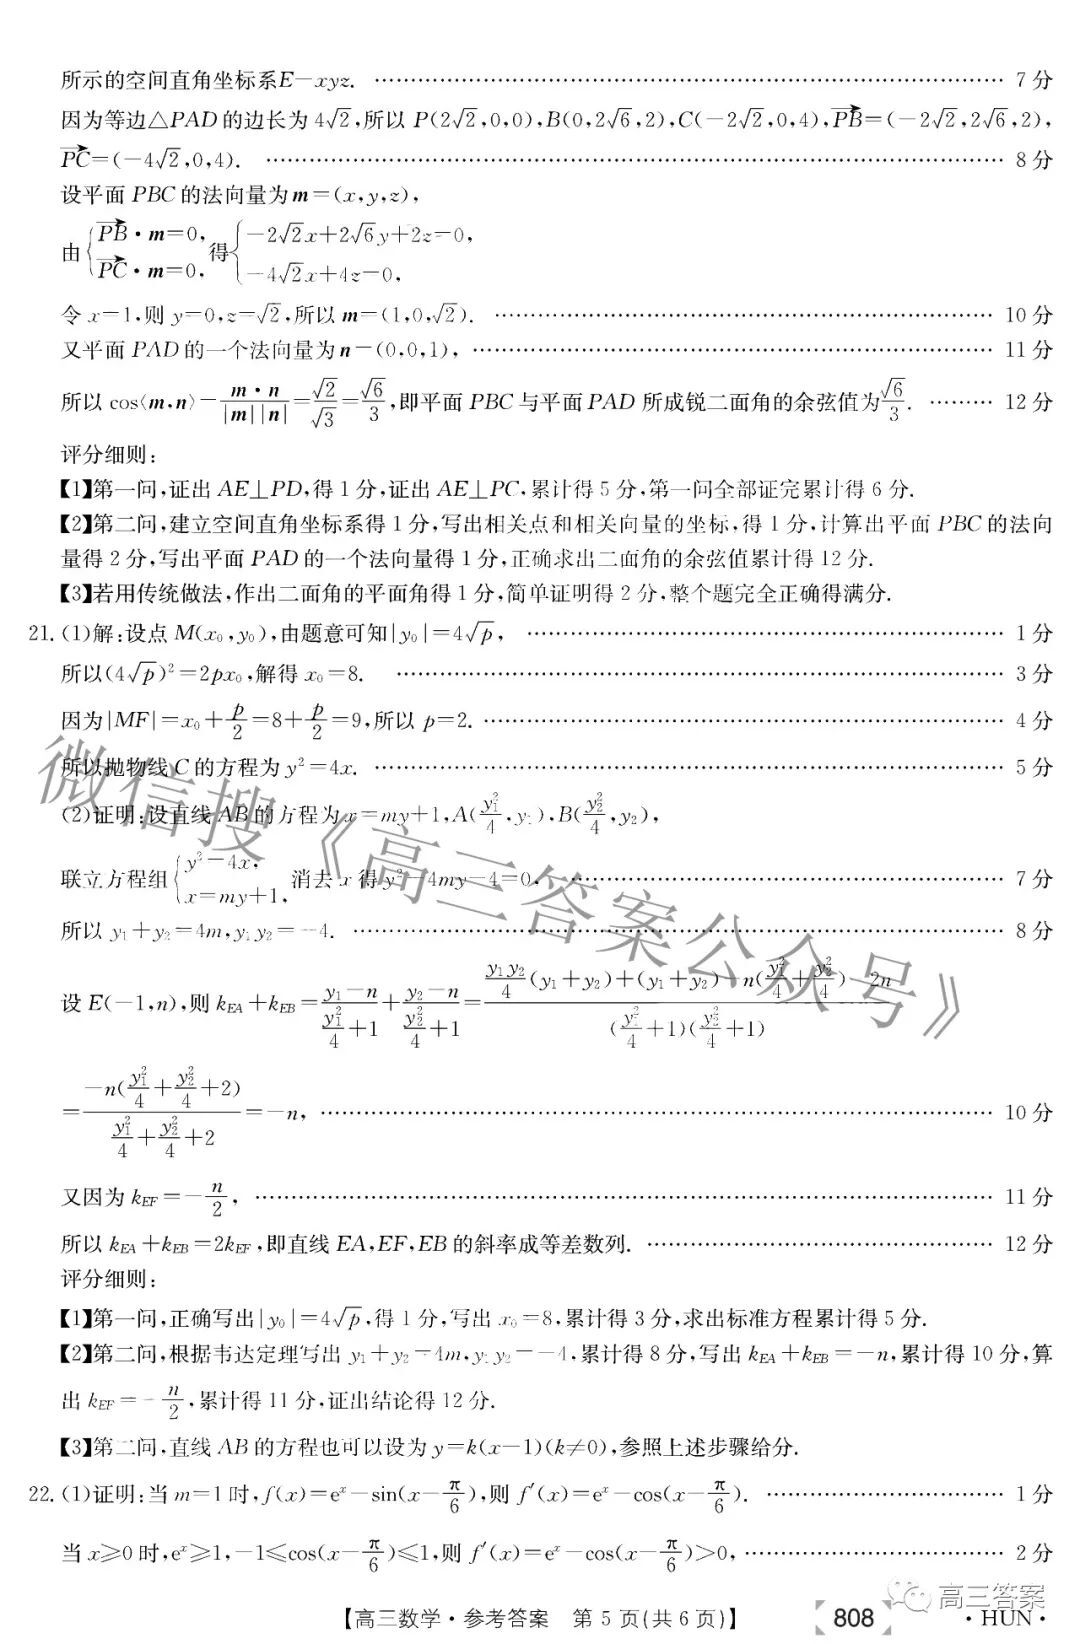 所示的空间直角坐标系E-xyz. …… 7分
因为等边△PAD的边长为4√2,所以P(2√2,0,0),B(0,2√6,2),C(-2√2,0,4),PB=(-2√2,2√6,2),
PC=(-4√2,0,4). …… 8分
设平面PBC的法向量为m=(x,y,z),
由{PB·m=0, PC·m=0, 得{-2√2x+2√6y+2z=0, -4√2x+4z=0,
令x=1,则y=0,z=√2,所以m=(1,0,√2). …… 10分
又平面PAD的一个法向量为n=(0,0,1), …… 11分
所以cos⟨m,n⟩=m·n/|m||n|=√2/√3=√6/3,即平面PBC与平面PAD所成锐二面角的余弦值为√6/3. …… 12分
评分细则:
【1】第一问,证出AE⊥PD,得1分,证出AE⊥PC,累计得5分,第一问全部证完累计得6分.
【2】第二问,建立空间直角坐标系得1分,写出相关点和相关向量的坐标,得1分,计算出平面PBC的法向
量得2分,写出平面PAD的一个法向量得1分,正确求出二面角的余弦值累计得12分.
【3】若用传统做法,作出二面角的平面角得1分,简单证明得2分,整个题完全正确得满分.
21.(1)解:设点M(x₀,y₀),由题意可知|y₀|=4√p, …… 1分
所以(4√p)²=2px₀,解得x₀=8. …… 3分
因为|MF|=x₀+p/2=8+p/2=9,所以p=2. …… 4分
所以抛物线C的方程为y²=4x. …… 5分
(2)证明:设直线AB的方程为x=my+1,A(y₁²/4,y₁),B(y₂²/4,y₂),
联立方程组{y²=4x, x=my+1, 消去x得y²-4my-4=0, …… 7分
所以y₁+y₂=4m,y₁y₂=-4. …… 8分
设E(-1,n),则kEA+kEB=(y₁-n)/(y₁²/4+1)+(y₂-n)/(y₂²/4+1)=[y₁y₂/4(y₁+y₂)+(y₁+y₂)-n(y₁²/4+y₂²/4)-2n]/[(y₁²/4+1)(y₂²/4+1)]
=[-n(y₁²/4+y₂²/4+2)]/[y₁²/4+y₂²/4+2]=-n, …… 10分
又因为kEF=-n/2, …… 11分
所以kEA+kEB=2kEF,即直线EA,EF,EB的斜率成等差数列. …… 12分
评分细则:
【1】第一问,正确写出|y₀|=4√p,得1分,写出x₀=8,累计得3分,求出标准方程累计得5分.
【2】第二问,根据韦达定理写出y₁+y₂=4m,y₁y₂=-4,累计得8分,写出kEA+kEB=-n,累计得10分,算
出kEF=-n/2,累计得11分,证出结论得12分.
【3】第二问,直线AB的方程也可以设为y=k(x-1)(k≠0),参照上述步骤给分.
22.(1)证明:当m=1时,f(x)=eˣ-sin(x-π/6),则f′(x)=eˣ-cos(x-π/6). …… 1分
当x≥0时,eˣ≥1,-1≤cos(x-π/6)≤1,则f′(x)=eˣ-cos(x-π/6)>0, …… 2分
微信搜《高三答案公众号》
高三答案
【高三数学·参考答案 第5页(共6页)】 808 ·HUN·